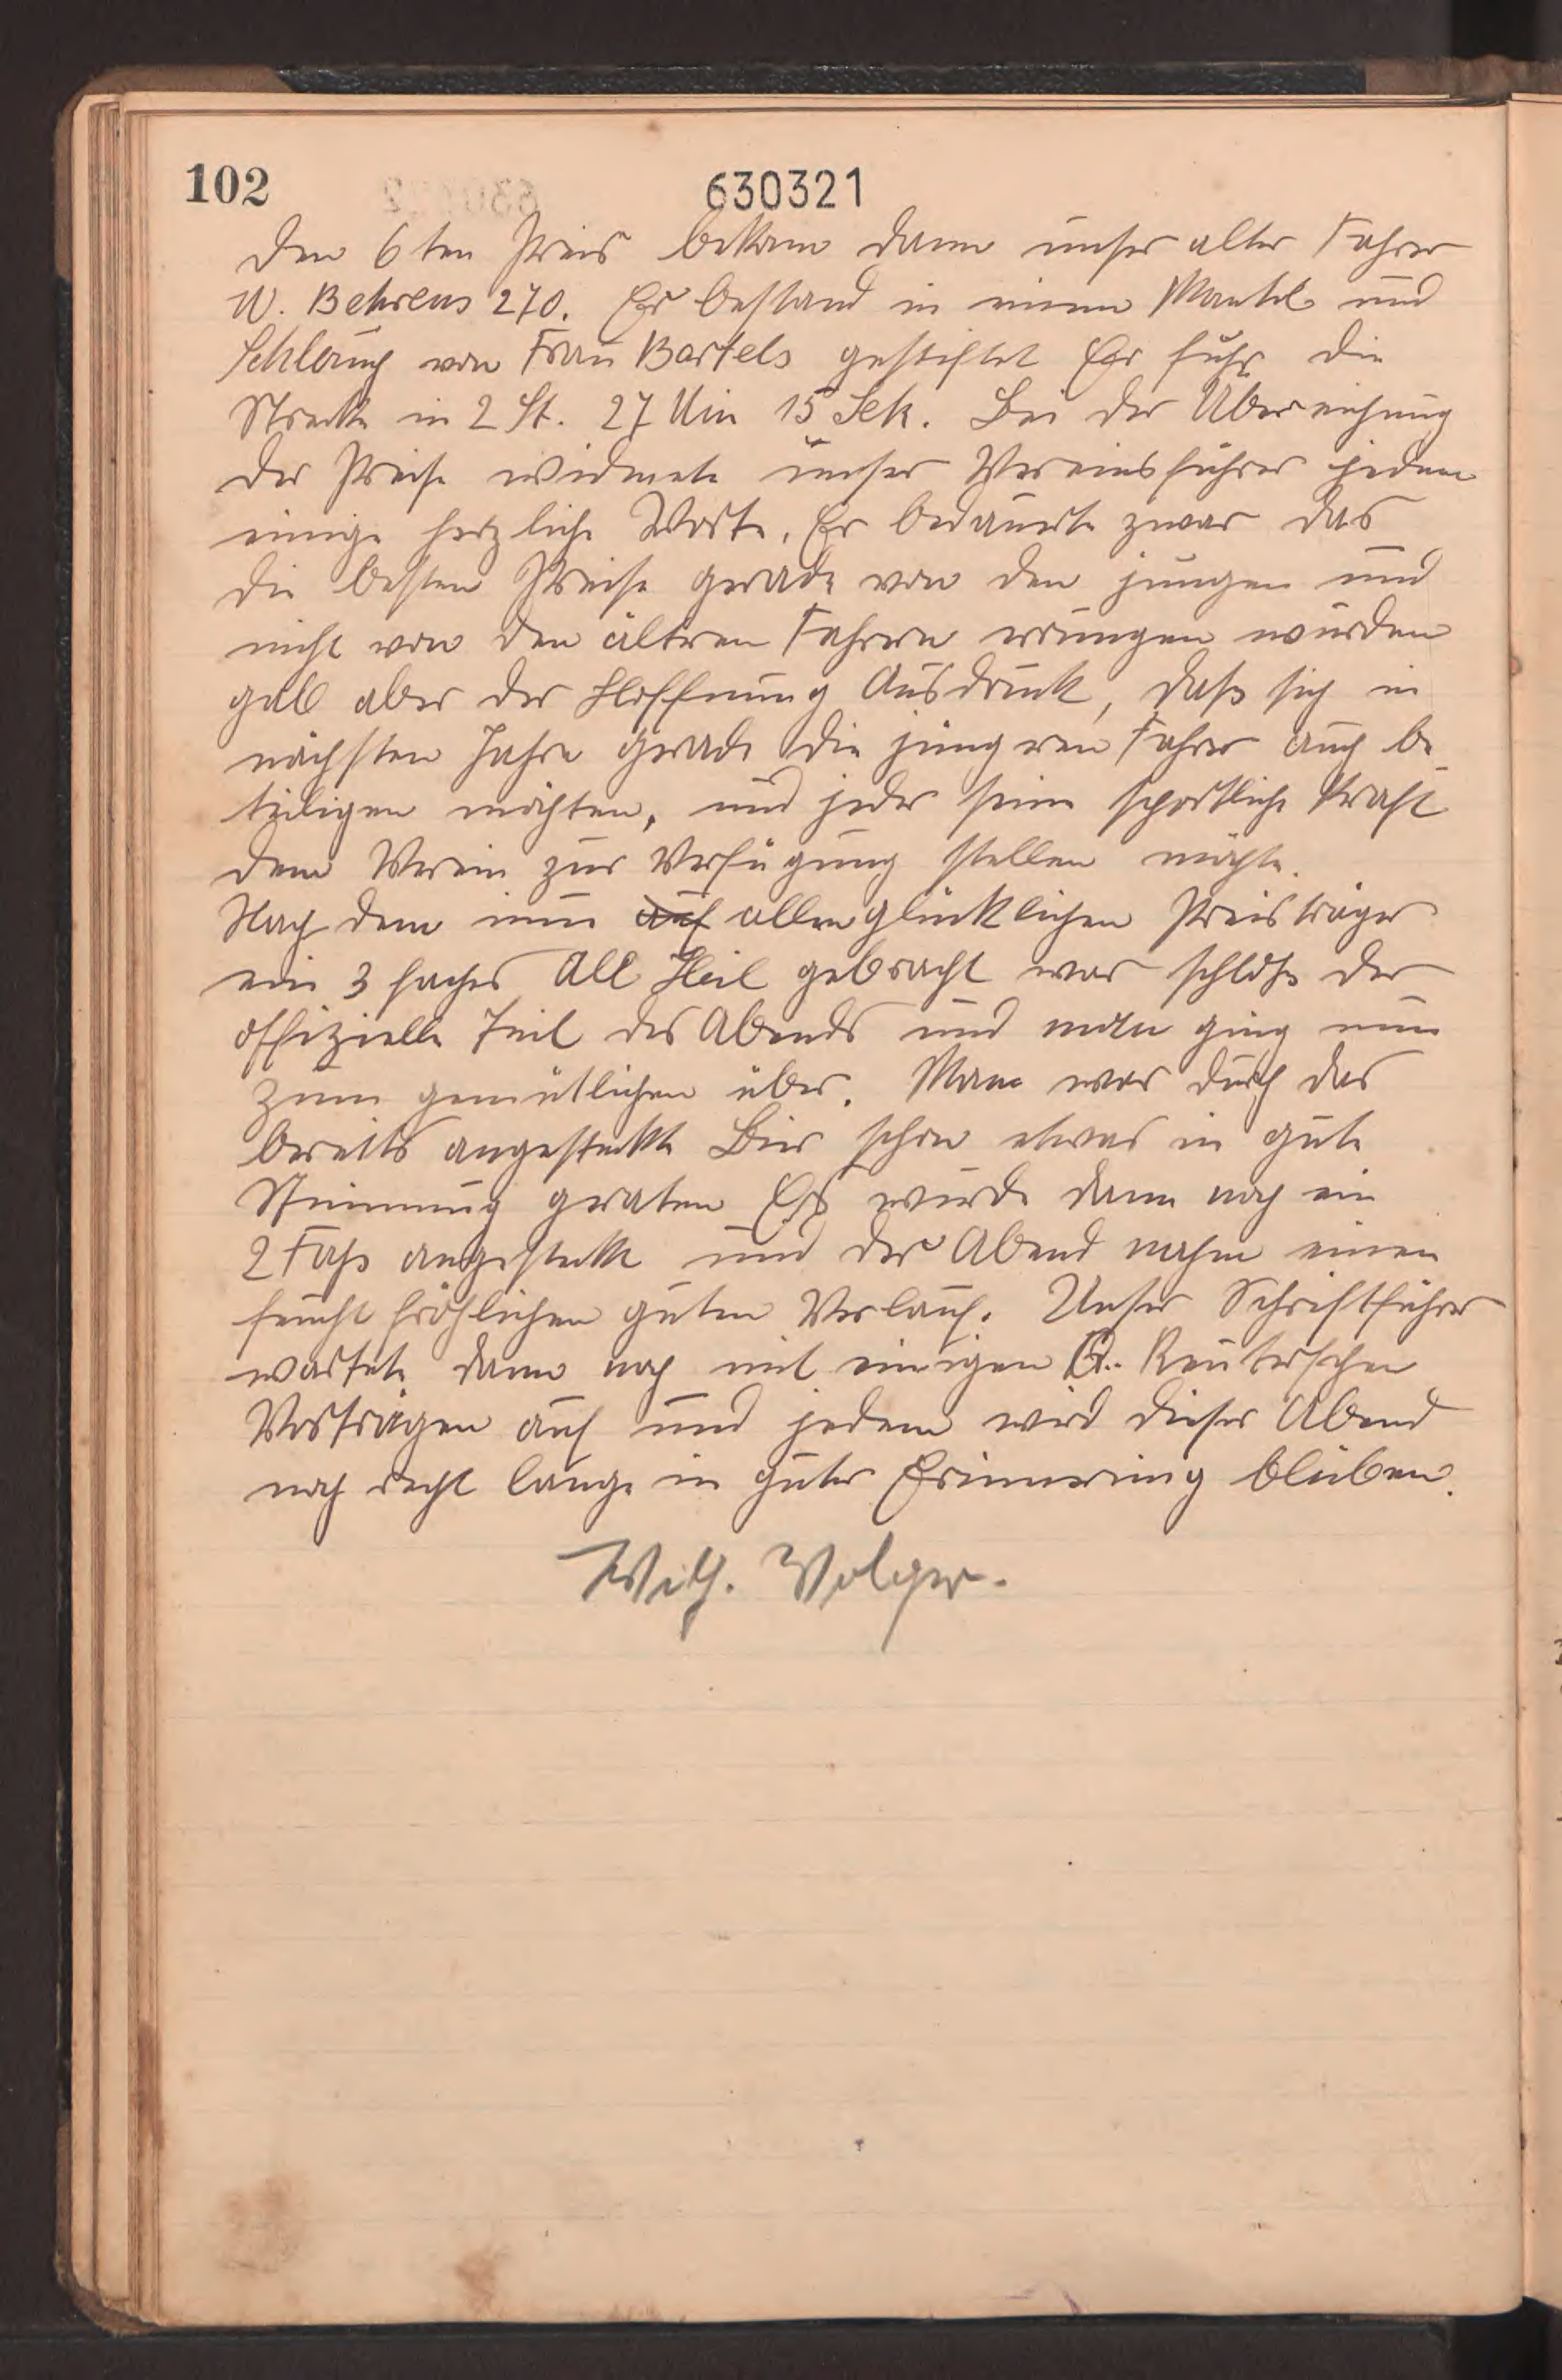 102
630321
Den 6ten Preis bekam dann unser alter Fahrer
W. Behrens 270. Er bestand in einem Mantel und
Schlauch von Frau Bartels gestiftet Er fuhr die
Strecke in 2 St. 27 Min 15 Sek. Bei der Überreichung
der Preise widmete unser Vereinsführer jedem
einige herzliche Worte. Er bedauerte zwar das
die besten Preise gerade von den jungen und
nicht von den ältren Fahrern errungen wurden
gab aber der Hoffnung Ausdruck, daß sich in
nächsten Jahre gerade die jüngren Fahrer auch be-
teiligen möchten, und jeder seine sportliche Kraft
dem Verein zur Verfügung stellen möchte.
Nach dem nun auf allen glücklichen Preisträger
ein 3 faches All Heil gebracht war schloß der
offizielle Teil des Abends und man ging nun
zum gemütlichen über. Man war durch das
bereits angesteckte Bier schon etwas in gute
Stimmung geraten Es wurde dann noch ein
2 Faß angesteckt und der Abend nahm einen
feucht fröhlichen guten Verlauf. Unser Schriftführer
wartete dann noch mit einigen Reuterschen
Vorträgen auf und jedem wird dieser Abend
noch recht lange in guter Erinnerung bleiben.
Wilh. Volger.